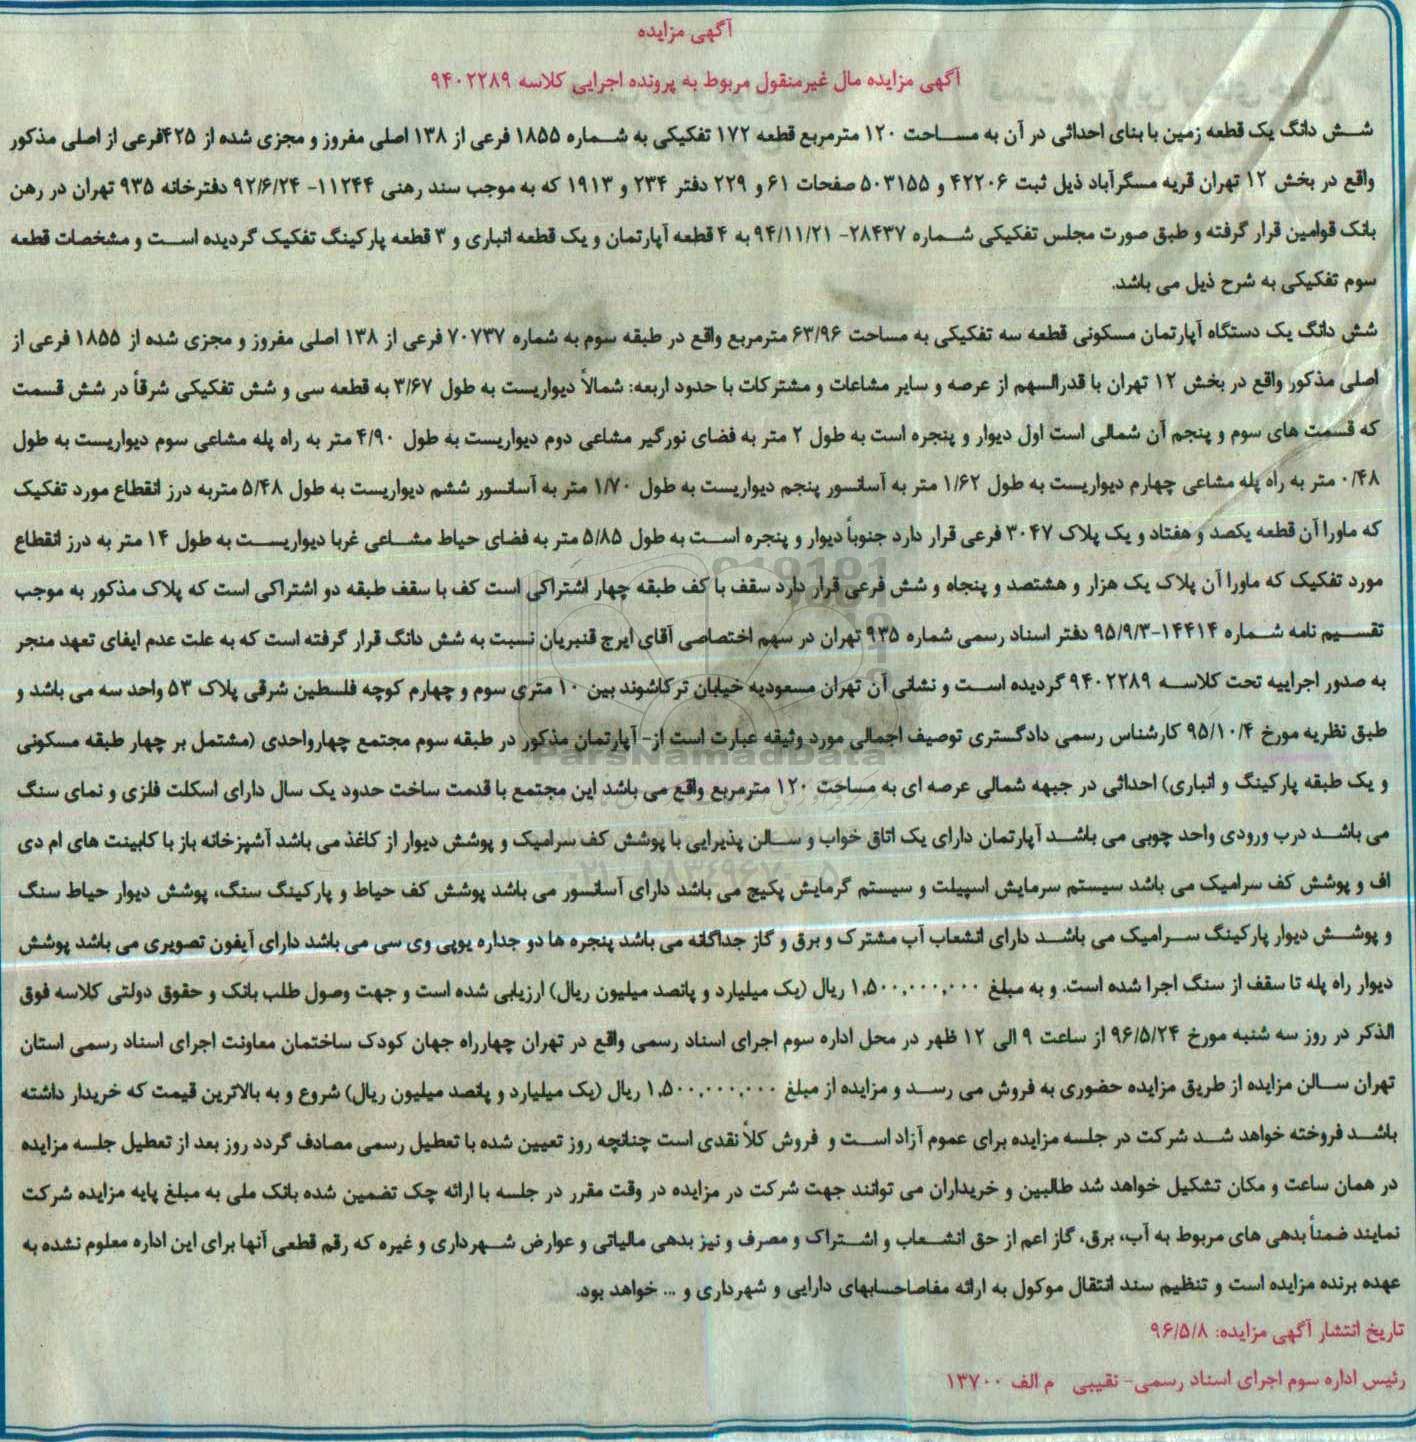 آگهی مزایده
آگهی مزایده مال غیرمنقول مربوط به پرونده اجرایی کلاسه ۹۴۰۲۲۸۹
شش دانگ یک قطعه زمین با بنای احداثی در آن به مساحت ۱۲۰ مترمربع قطعه ۱۷۲ تفکیکی به شماره ۱۸۵۵ فرعی از ۱۳۸ اصلی مفروز و مجزی شده از ۴۲۵فرعی از اصلی مذکور
واقع در بخش ۱۲ تهران قریه مسگرآباد ذیل ثبت ۴۲۲۰۶ و ۵۰۳۱۵۵ صفحات ۶۱ و ۲۲۹ دفتر ۲۳۴ و ۱۹۱۳ که به موجب سند رهنی ۱۱۲۴۴- ۹۲/۶/۲۴ دفترخانه ۹۳۵ تهران در رهن
بانک قوامین قرار گرفته و طبق صورت مجلس تفکیکی شماره ۲۸۴۳۷- ۹۴/۱۱/۲۱ به ۴ قطعه آپارتمان و یک قطعه انباری و ۳ قطعه پارکینگ تفکیک گردیده است و مشخصات قطعه
سوم تفکیکی به شرح ذیل می باشد.
شش دانگ یک دستگاه آپارتمان مسکونی قطعه سه تفکیکی به مساحت ۶۳/۹۶ مترمربع واقع در طبقه سوم به شماره ۷۰۷۳۷ فرعی از ۱۳۸ اصلی مفروز و مجزی شده از ۱۸۵۵ فرعی از
اصلی مذکور واقع در بخش ۱۲ تهران با قدرالسهم از عرصه و سایر مشاعات و مشترکات با حدود اربعه: شمالاً دیواریست به طول ۳/۶۷ به قطعه سی و شش تفکیکی شرقاً در شش قسمت
که قسمت های سوم و پنجم آن شمالی است اول دیوار و پنجره است به طول ۲ متر به فضای نورگیر مشاعی دوم دیواریست به طول ۴/۹۰ متر به راه پله مشاعی سوم دیواریست به طول
۰/۴۸ متر به راه پله مشاعی چهارم دیواریست به طول ۱/۶۲ متر به آسانسور پنجم دیواریست به طول ۱/۷۰ متر به آسانسور ششم دیواریست به طول ۵/۴۸ متربه درز انقطاع مورد تفکیک
که ماورا آن قطعه یکصد و هفتاد و یک پلاک ۳۰۴۷ فرعی قرار دارد جنوباً دیوار و پنجره است به طول ۵/۸۵ متر به فضای حیاط مشاعی غربا دیواریست به طول ۱۴ متر به درز انقطاع
مورد تفکیک که ماورا آن پلاک یک هزار و هشتصد و پنجاه و شش فرعی قرار دارد سقف با کف طبقه چهار اشتراکی است کف با سقف طبقه دو اشتراکی است که پلاک مذکور به موجب
تقسیم نامه شماره ۱۴۴۱۴-۹۵/۹/۳ دفتر اسناد رسمی شماره ۹۳۵ تهران در سهم اختصاصی آقای ایرج قنبریان نسبت به شش دانگ قرار گرفته است که به علت عدم ایفای تعهد منجر
به صدور اجراییه تحت کلاسه ۹۴۰۲۲۸۹ گردیده است و نشانی آن تهران مسعودیه خیابان ترکاشوند بین ۱۰ متری سوم و چهارم کوچه فلسطین شرقی پلاک ۵۳ واحد سه می باشد و
طبق نظریه مورخ ۹۵/۱۰/۴ کارشناس رسمی دادگستری توصیف اجمالی مورد وثیقه عبارت است از- آپارتمان مذکور در طبقه سوم مجتمع چهارواحدی (مشتمل بر چهار طبقه مسکونی
و یک طبقه پارکینگ و انباری) احداثی در جبهه شمالی عرصه ای به مساحت ۱۲۰ مترمربع واقع می باشد این مجتمع با قدمت ساخت حدود یک سال دارای اسکلت فلزی و نمای سنگ
می باشد درب ورودی واحد چوبی می باشد آپارتمان دارای یک اتاق خواب و سالن پذیرایی با پوشش کف سرامیک و پوشش دیوار از کاغذ می باشد آشپزخانه باز با کابینت های ام دی
اف و پوشش کف سرامیک می باشد سیستم سرمایش اسپیلت و سیستم گرمایش پکیج می باشد دارای آسانسور می باشد پوشش کف حیاط و پارکینگ سنگ، پوشش دیوار حیاط سنگ
و پوشش دیوار پارکینگ سرامیک می باشد دارای انشعاب آب مشترک و برق و گاز جداگانه می باشد پنجره ها دو جداره یوپی وی سی می باشد دارای آیفون تصویری می باشد پوشش
دیوار راه پله تا سقف از سنگ اجرا شده است. و به مبلغ ۱,۵۰۰,۰۰۰,۰۰۰ ریال (یک میلیارد و پانصد میلیون ریال) ارزیابی شده است و جهت وصول طلب بانک و حقوق دولتی کلاسه فوق
الذکر در روز سه شنبه مورخ ۹۶/۵/۲۴ از ساعت ۹ الی ۱۲ ظهر در محل اداره سوم اجرای اسناد رسمی واقع در تهران چهارراه جهان کودک ساختمان معاونت اجرای اسناد رسمی استان
تهران سالن مزایده از طریق مزایده حضوری به فروش می رسد و مزایده از مبلغ ۱,۵۰۰,۰۰۰,۰۰۰ ریال (یک میلیارد و پانصد میلیون ریال) شروع و به بالاترین قیمت که خریدار داشته
باشد فروخته خواهد شد شرکت در جلسه مزایده برای عموم آزاد است و فروش کلاً نقدی است چنانچه روز تعیین شده با تعطیل رسمی مصادف گردد روز بعد از تعطیل جلسه مزایده
در همان ساعت و مکان تشکیل خواهد شد طالبین و خریداران می توانند جهت شرکت در مزایده در وقت مقرر در جلسه با ارائه چک تضمین شده بانک ملی به مبلغ پایه مزایده شرکت
نمایند ضمناً بدهی های مربوط به آب، برق، گاز اعم از حق انشعاب و اشتراک و مصرف و نیز بدهی مالیاتی و عوارض شهرداری و غیره که رقم قطعی آنها برای این اداره معلوم نشده به
عهده برنده مزایده است و تنظیم سند انتقال موکول به ارائه مفاصاحسابهای دارایی و شهرداری و ... خواهد بود.
تاریخ انتشار آگهی مزایده: ۹۶/۵/۸
رئیس اداره سوم اجرای اسناد رسمی- نقیبی م الف ۱۳۷۰۰
ParsNamadData